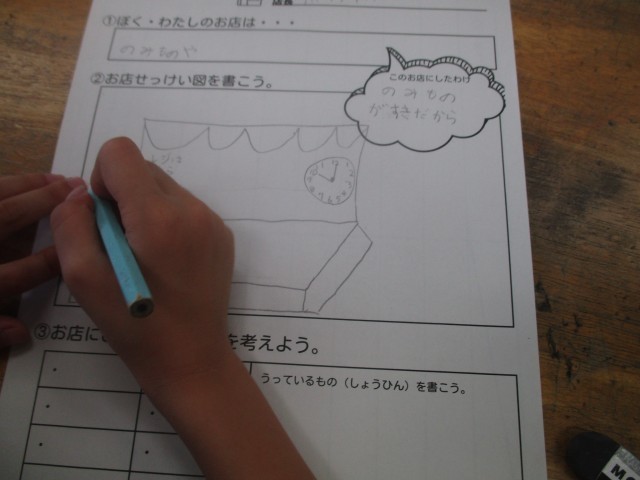 店長
①ぼく・わたしのお店は・・・
のみものや
②お店せっけい図を書こう。
このお店にしたわけ
のみもの
が好きだから
③お店に
を考えよう。
うっているもの（しょうひん）を書こう。